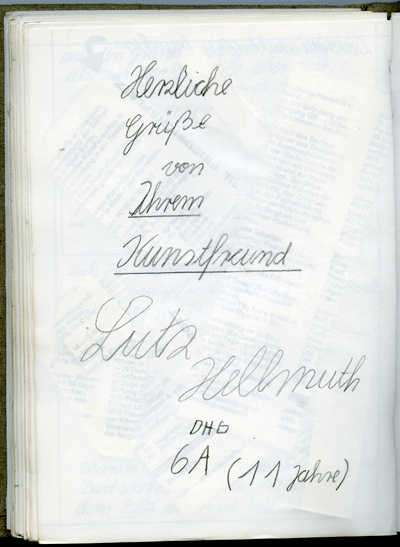 Herzliche
Grüße
von
Ihrem
Kunstfreund
Lutz
Hellmuth
DHG
6A (11 Jahre)